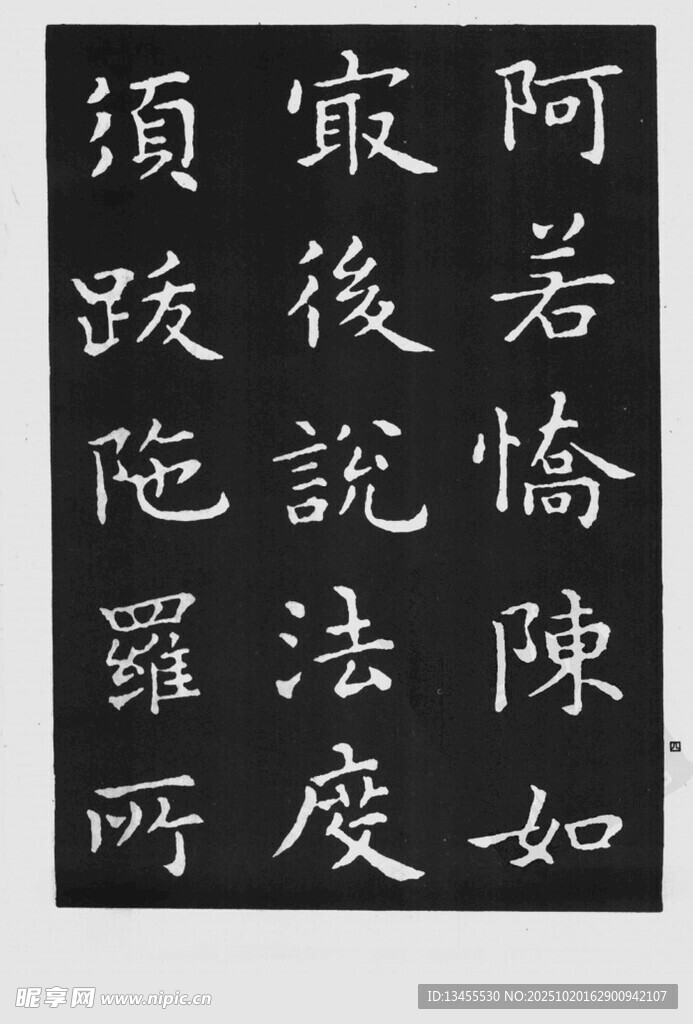 阿若憍陳如
冣後說法度
須跋陁羅所
四
昵享网 www.nipic.cn
ID:13455530 NO:20251020162900942107